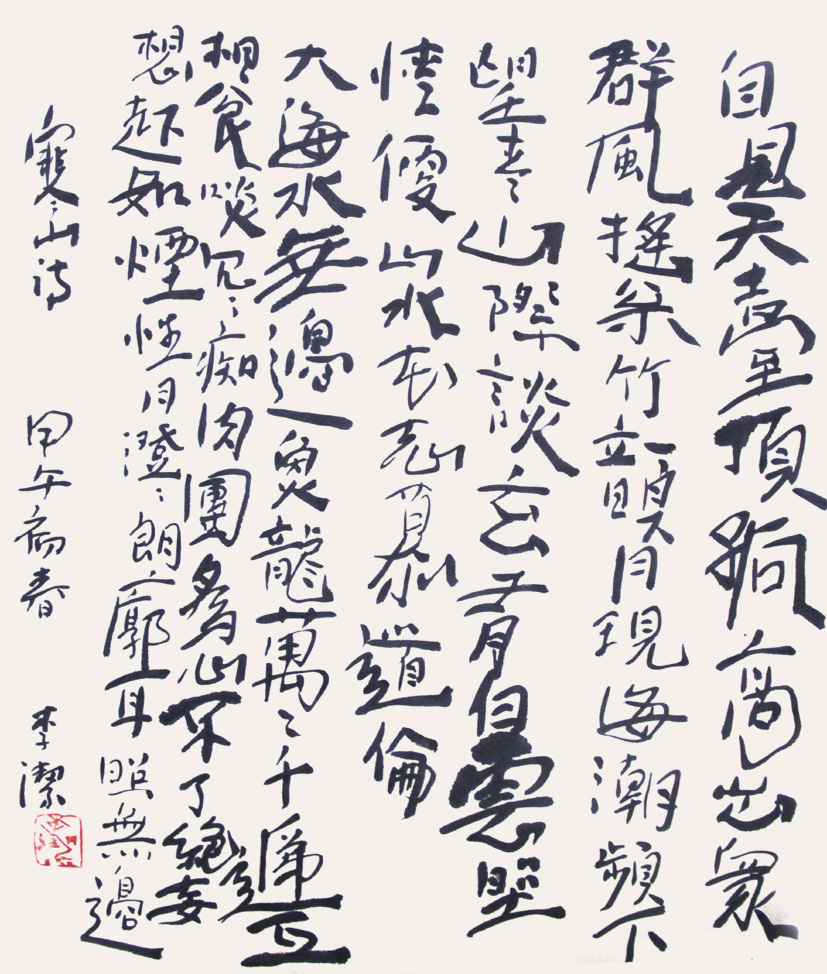 自見天臺頂孤高出眾
群風搖松竹韻月現海潮頻下
望青山際談玄有白雲野
情便山水本志慕道倫
大海水無邊魚龍萬〻千遞互
相食啖冗〻痴肉團為心不了絕妄
想起如煙性月澄〻朗廓耳照無邊
寒山詩 甲午初春 李潔